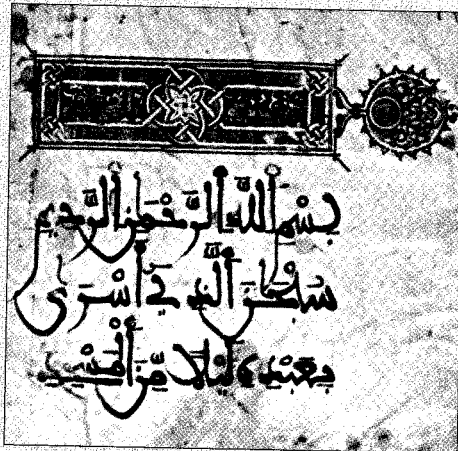 بِسْمِ اللَّهِ الرَّحْمَٰنِ الرَّحِيمِ
سُبْحَٰنَ الَّذِي أَسْرَىٰ
بِعَبْدِهِ لَيْلًا مِّنَ الْمَسْجِدِ